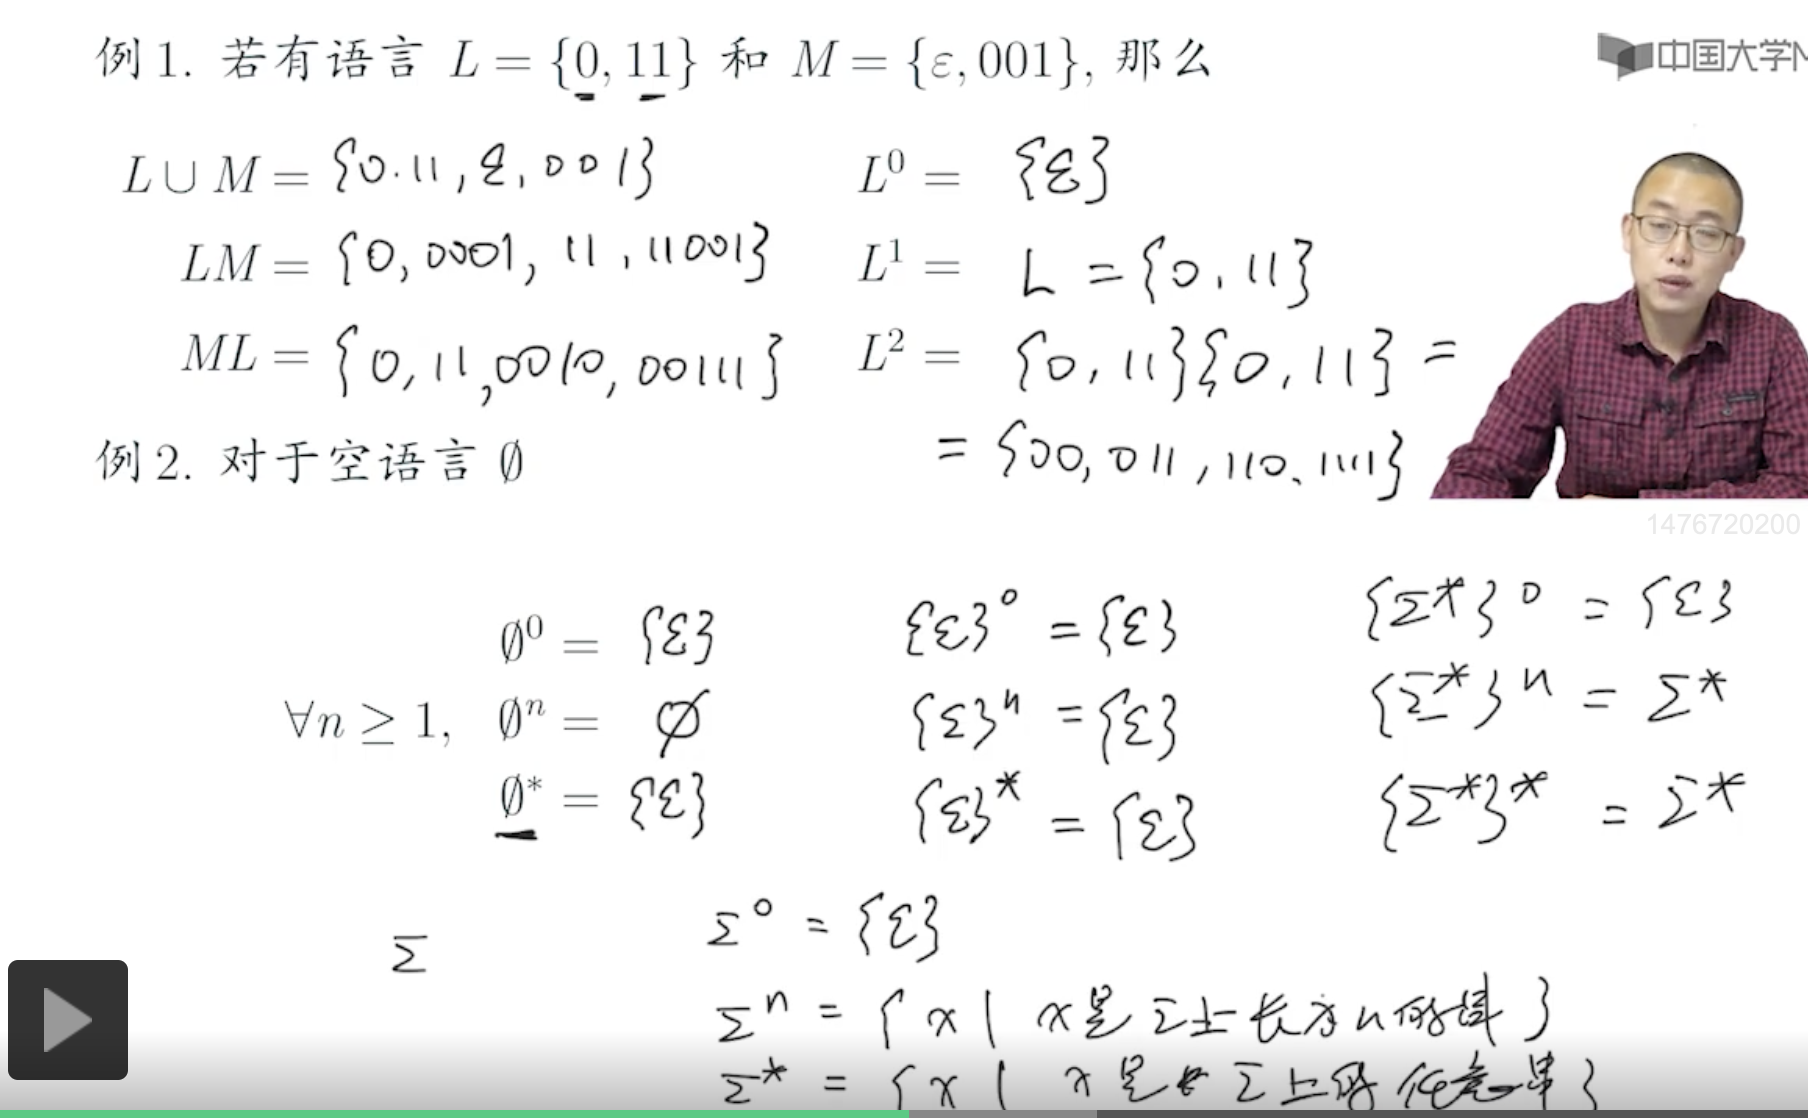 例 1. 若有语言 L = {0, 11} 和 M = {ε, 001}, 那么
中国大学M
L ∪ M = {0.11, ε, 001}
L⁰ = {ε}
LM = {0, 0001, 11, 11001}
L¹ = L = {0, 11}
ML = {0, 11, 0010, 00111}
L² = {0, 11}{0, 11} =
= {00, 011, 110, 1111}
例 2. 对于空语言 ∅
1476720200
∅⁰ = {ε}
{ε}⁰ = {ε}
{Σ*}⁰ = {ε}
∀n ≥ 1, ∅ⁿ = ∅
{ε}ⁿ = {ε}
{Σ*}ⁿ = Σ*
∅* = {ε}
{ε}* = {ε}
{Σ*}* = Σ*
Σ
Σ⁰ = {ε}
Σⁿ = {x | x是Σ上长为n的串}
Σ* = {x | x是Σ上的任意串}